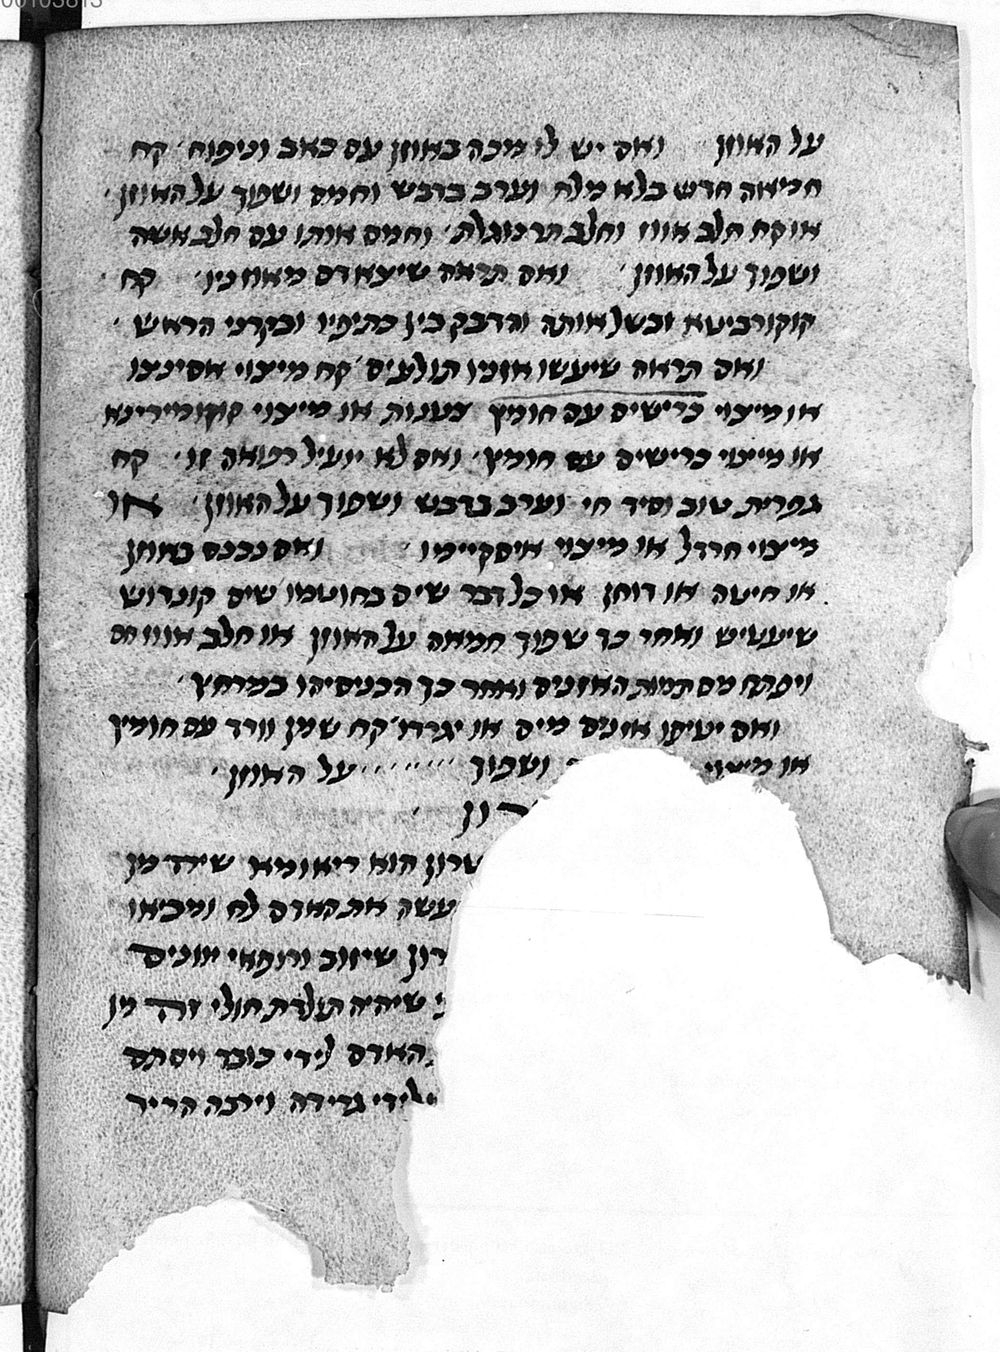 00103813
על האוזן ואם יש לו מכה באוזן עם כאב וניפוח קח
חמיאה חדש בלא מלח וערב בדבש וחמם ושפוך על האוזן
או קח חלב אווז וחלב תרנוגלת וחמם אותו עם חלב אשה
ושפוך על האוזן ואם תראה שיצא דם מאוזניו קח
קוקורביטא ובשל אותה והדבק בין כתיפיו ובקרני הראש
ואם תראה שיעשו אוזניו תולעים קח מייצוי אסינצו
או מיצוי כרישים עם חומץ כענות או מיצוי קוקומירינא
או מייצוי כרישים עם חומץ ואם לא יועיל רפואה זו קח
גפרית טוב וסיד חי וערב בדבש ושפוך על האוזן או
מייצוי חרדל או מיצוי איסקיימו ואם נכנס באוזן
או חיטה או דוחן או כל דבר שים בחוטמו שים קונדוש
שיעטיש ואחר כך שפוך חמאה על האוזן או חלב אווז חם
ויפתח מסתמות האזנים ואחר כך הכניסיהו במרחץ
ואם יטיפו אזנים מים או יגרדו קח שמן וורד עם חומץ
או מיצוי ושפוך על האוזן
רון
שרון הוא ריאומא שירד מן
עשה את האדם לח ומביאו
רון שיזוב ורופאי יוונים
שיהיה תולדת חולי זה מן
האדם לידי כובד ויסתם
לידי גרידה וירבה הריר